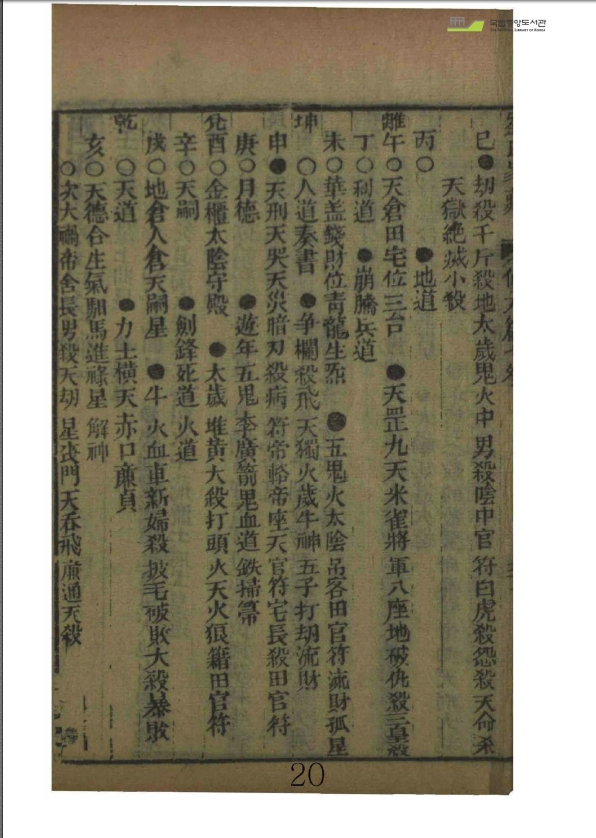 국립중앙도서관
THE NATIONAL LIBRARY OF KOREA
巳●刼殺千斤殺地太歲鬼火中男殺陰中官符白虎殺怨殺天命
天獄絶滅小殺
丙○ ●地道
離午○天倉田宅位三台 ●天罡九天朱雀將軍八座地破仇殺三
丁○利道 ●崩騰兵道
未○華盖錢財位青龍生炁 ●五鬼火太陰吊客田官符流財孤星
坤○人道奏書 ●争欄殺飛天獨火歲牛神五子打刼流財
申●天刑天哭天災暗刃殺病符帝輅帝座天官符宅長殺田官符
庚○月德 ●遊年五鬼李廣箭鬼血道鉄掃箒
兊酉○金櫃太陰守殿 ●太歲堆黃大殺打頭火天火狼籍田官符
辛○天嗣 ●劍鋒死道火道
戌○地倉人倉天嗣星 ●牛火血車新婦殺披毛破敗大殺暴敗
乾○天道 ●力士橫天赤口廉貞
亥○天德合生氣馹馬進祿星解神
○次大禍帝舍長男殺天刼星丧門天吞飛廉通天殺
20